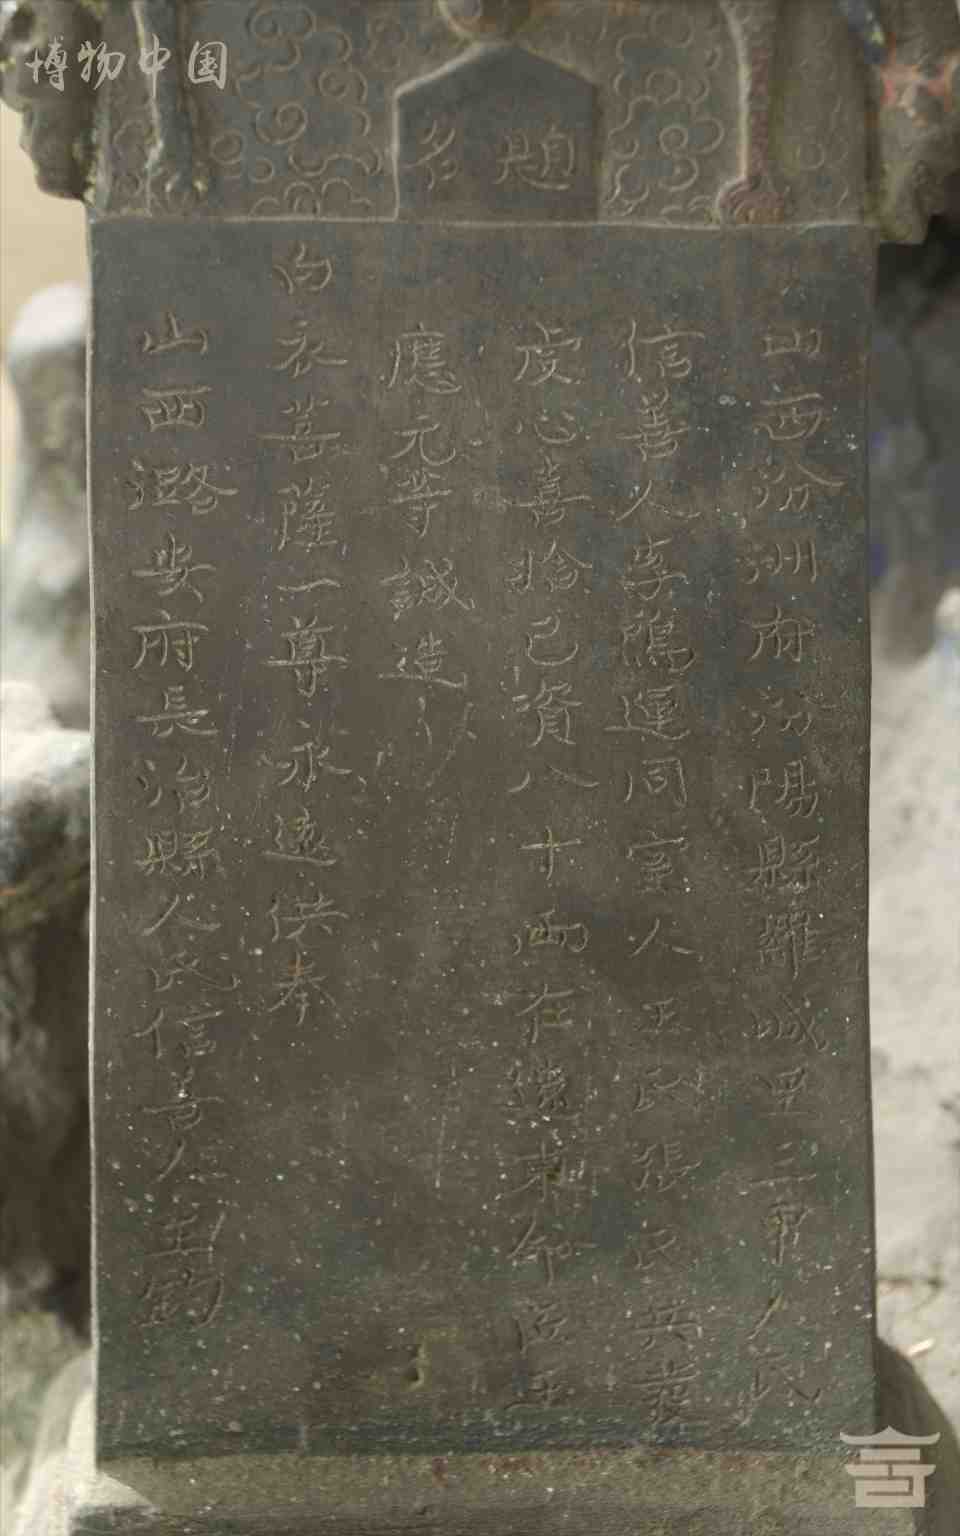 博物中国
題名
山西汾洲府汾陽縣羅城里三甲人民
信善人李 運同室人王氏張氏共發
虔心喜捨己資八十兩在 命匠王
應元等誠造
白衣菩薩一尊永遠供奉
山西潞安府長治縣人民信善人王鈞